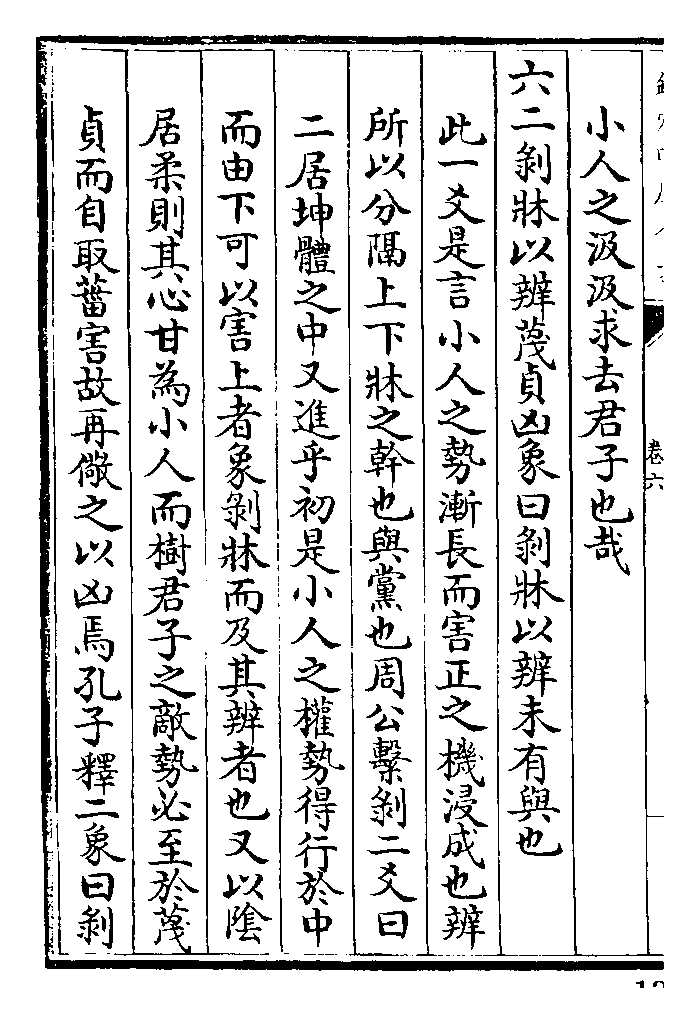 卷六
小人之汲汲求去君子也哉
六二剝牀以辨蔑貞凶象曰剝牀以辨未有與也
此一爻是言小人之勢漸長而害正之機浸成也辨
所以分隔上下牀之幹也與黨也周公繫剝二爻曰
二居坤體之中又進乎初是小人之權勢得行於中
而由下可以害上者象剝牀而及其辨者也又以陰
居柔則其心甘為小人而樹君子之敵勢必至於蔑
貞而自取菑害故再儆之以凶焉孔子釋二象曰剝